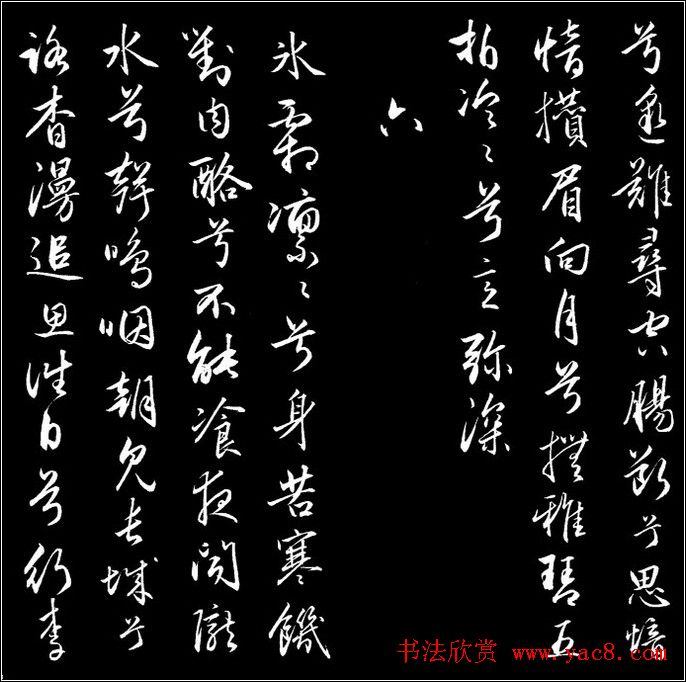 兮邈難尋空腸斷兮思愔
愔攢眉向月兮撫雅琴五
拍泠々兮意弥深
六
氷霜凛々兮身苦寒饑
對肉酪兮不能飡夜聞隴
水兮聲嗚咽朝見長城兮
路杳漫追思往日兮行李
书法欣赏 www.yac8.com